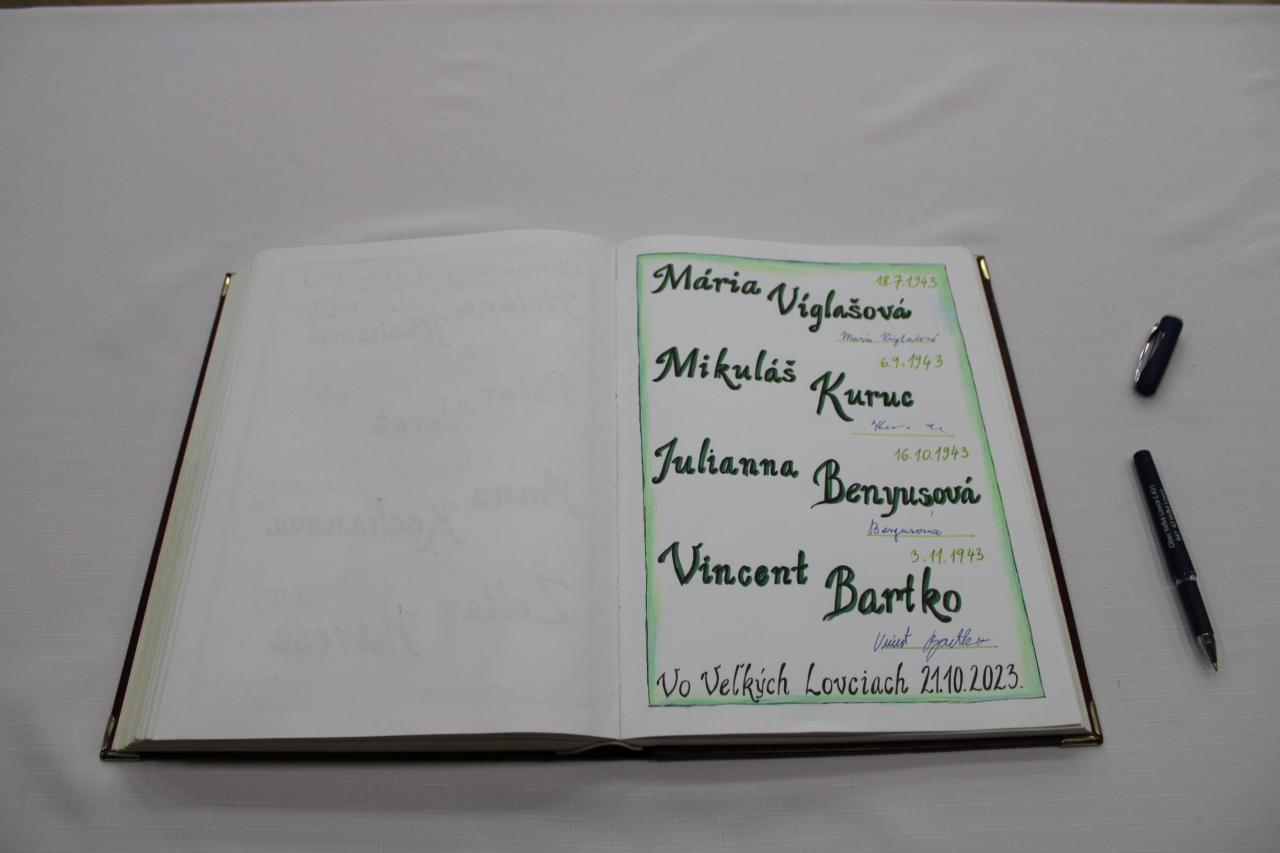 Mária 18.7.1943
Víglašová
Maria Víglašová
Mikuláš 6.9.1943
Kuruc
Julianna 16.10.1943
Benyusová
Benyusová
Vincent 3.11.1943
Bartko
Vincent Bartko
Vo Veľkých Lovciach 21.10.2023.